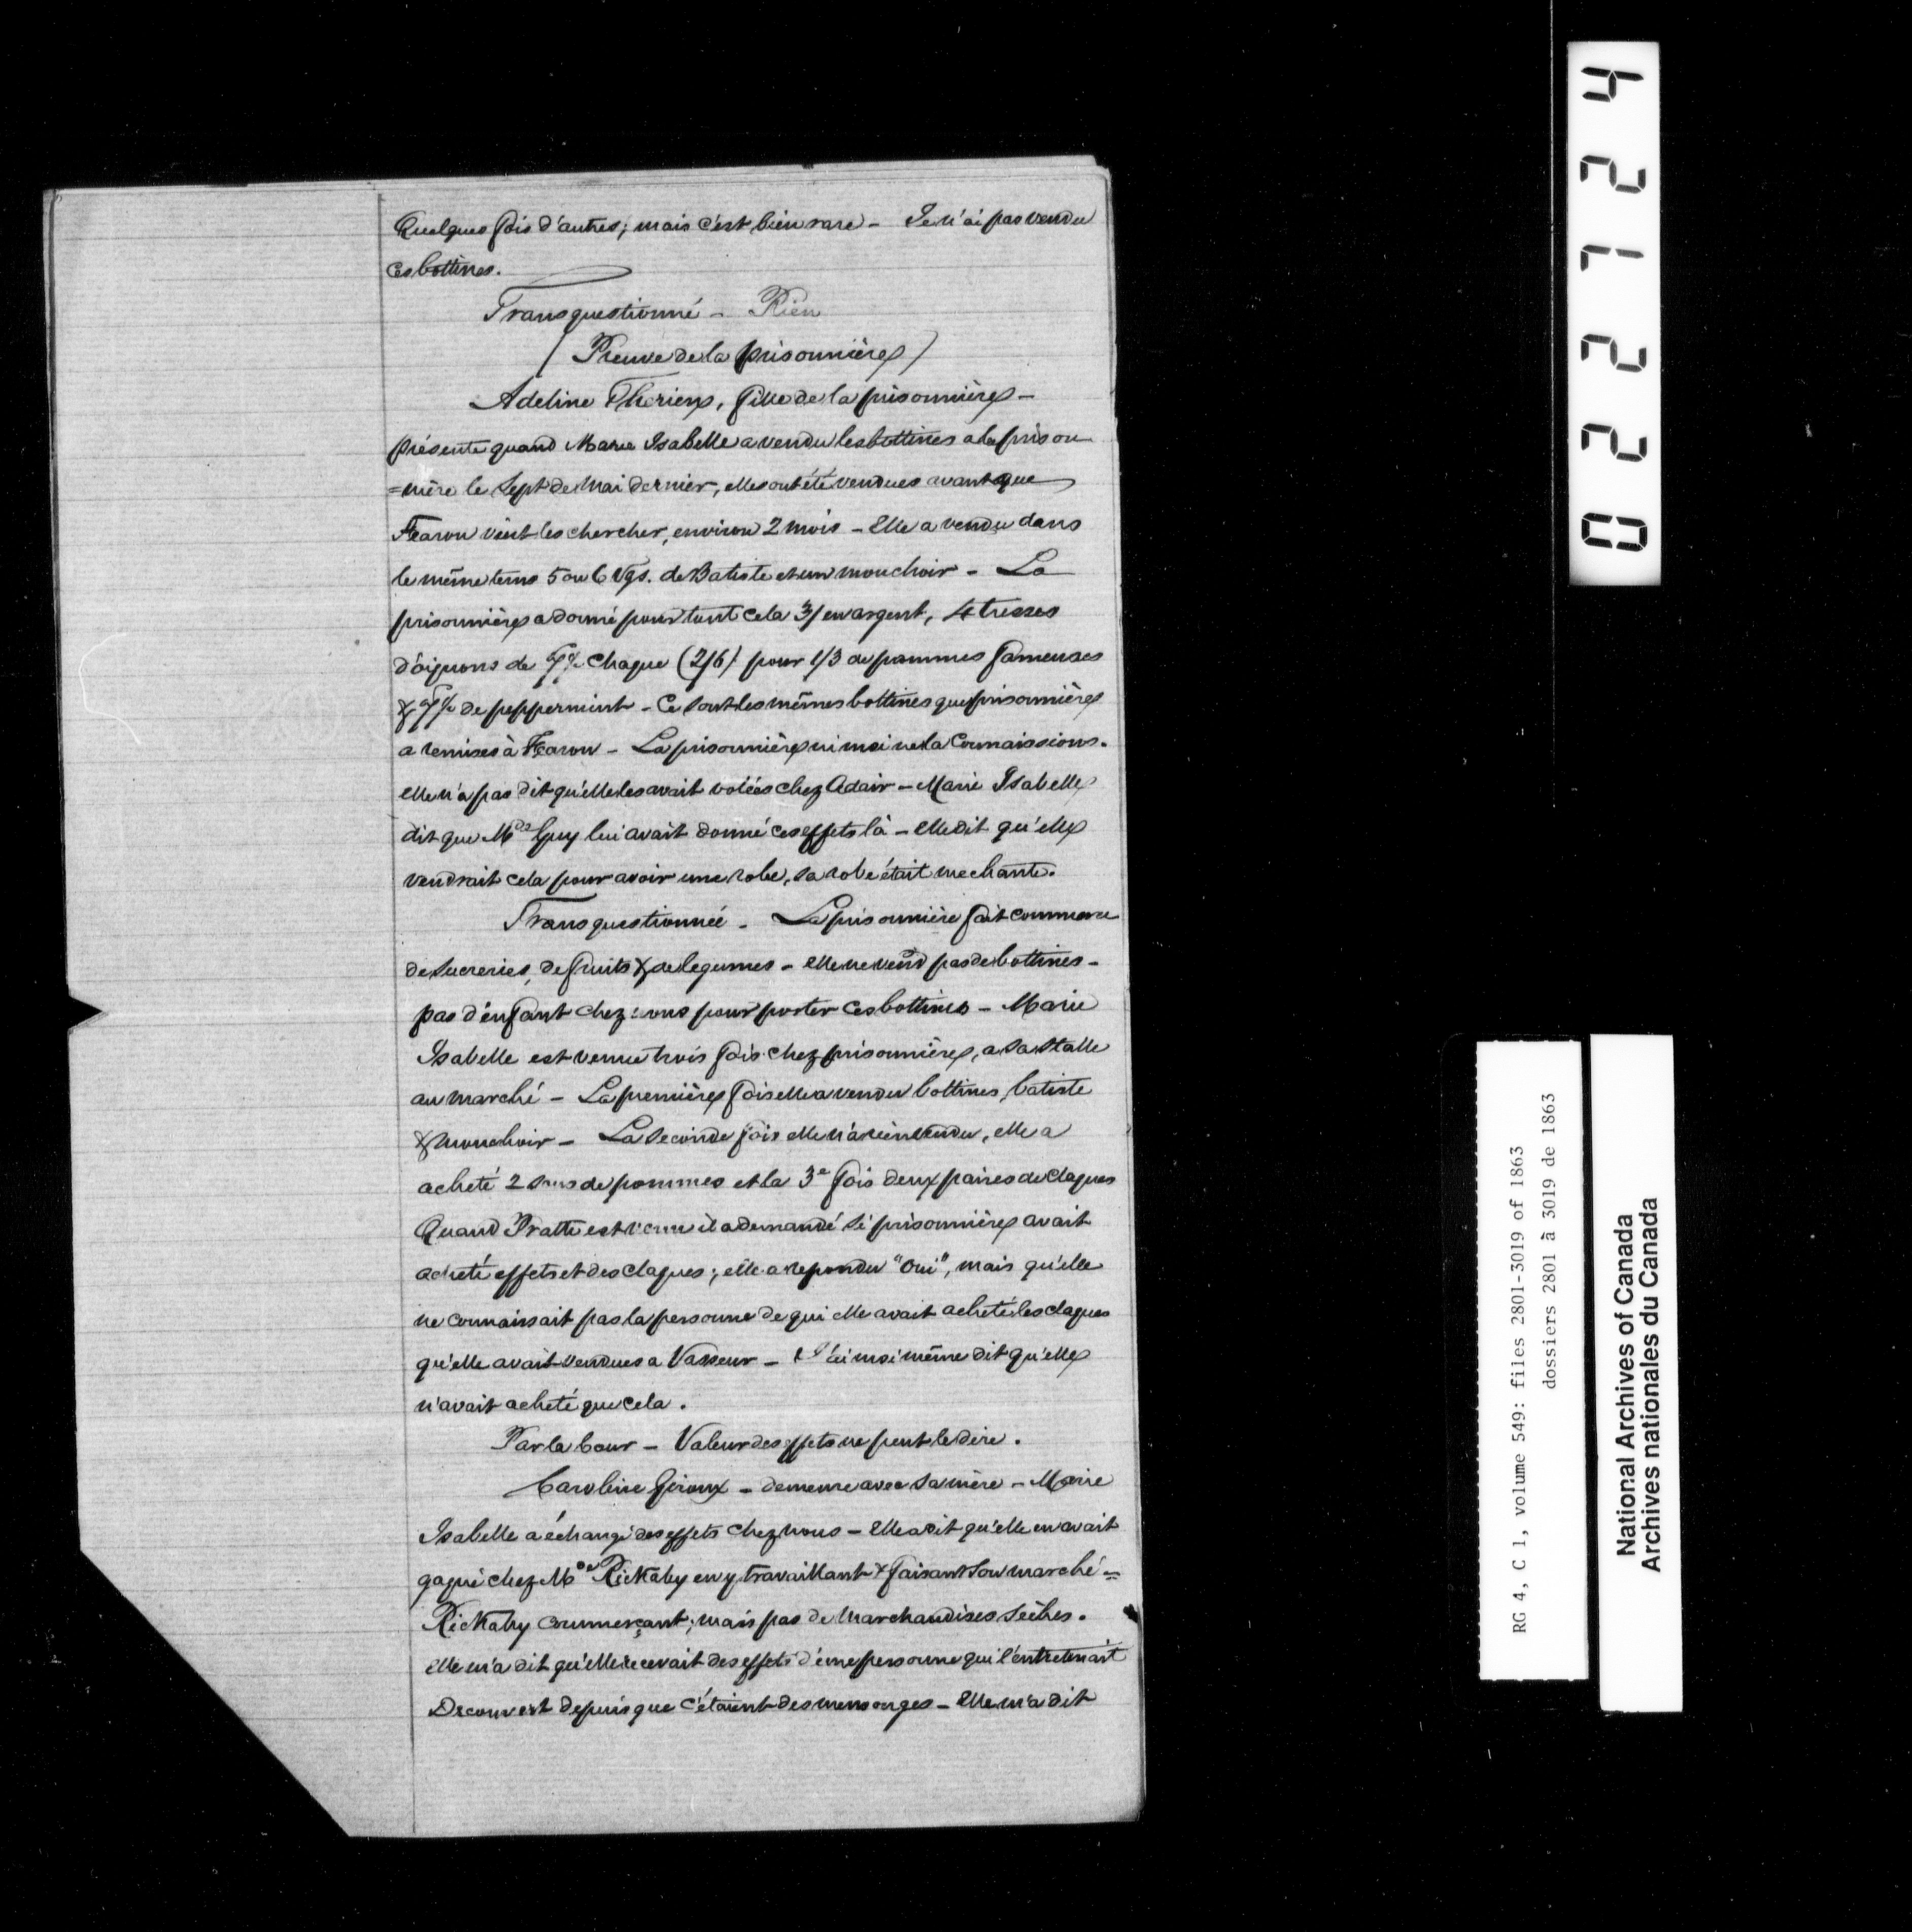 Quelques fois d'autres; mais c'est bien rare – Je n'ai pas vendu
ces bottines.
Transquestionné – Rien
(Preuve de la prisonnière)
Adeline Therien, fille de la prisonnière –
présente quand Marie Isabelle a vendu les bottines a la prison
=nière le Sept de Mai dernier, elles ont été vendues avant que
Fearon vient les chercher, environ 2 mois – Elle a vendu dans
le même tems 5 ou 6 Vgs. de Batiste et un mouchoir – La
prisonnière a donné pour tout cela 3/ en argent, 4 tresses
d'oignons de 7½ chaque (2/6) pour 1/3 de pommes fameuses
& 7½ de peppermint – Ce sont les mêmes bottines que prisonnière
a remises à Fearon – La prisonnière ni moi ne la connaissions.
elle n'a pas dit qu'elle les avait volées chez Adair – Marie Isabelle
dit que Mde Guy lui avait donné ces effets là – Elle dit qu'elle
vendrait cela pour avoir une robe, sa robe était mechante.
Transquestionnée – La prisonnière fait commerce
de sucreries, de fruits & de legumes – elle ne vend pas de bottines –
pas d'enfant chez nous pour porter ces bottines – Marie
Isabelle est venue trois fois chez prisonnière, a sa stalle
au marché – La première fois elle a vendu bottines, batiste
& mouchoir – La seconde fois elle n'a rien vendu, elle a
acheté 2 sous de pommes et la 3e fois deux paires de claques
Quand Tratte est venu il a demandé si prisonnière avait
acheté effets et des claques; elle a repondu "Oui", mais qu'elle
ne connaissait pas la personne de qui elle avait acheté les claques
qu'elle avait vendues a Vasseur – J'ai moi même dit qu'elle
n'avait acheté que cela.
Par la Cour – Valeur des effets ne peut le dire.
Caroline Giroux – demeure avec sa mère – Marie
Isabelle a échangé des effets chez nous – Elle a dit qu'elle en avait
gagné chez Mde Rickaby en y travaillant & faisant son marché =
Rickaby commerçant; mais pas de Marchandises sèches.
Elle m'a dit qu'elle recevait des effets d'une personne qui l'entretenait
Decouvert depuis que c'étaient des mensonges – Elle m'a dit
022124
RG 4, C 1, volume 549: files 2801-3019 of 1863
dossiers 2801 à 3019 de 1863
National Archives of Canada
Archives nationales du Canada